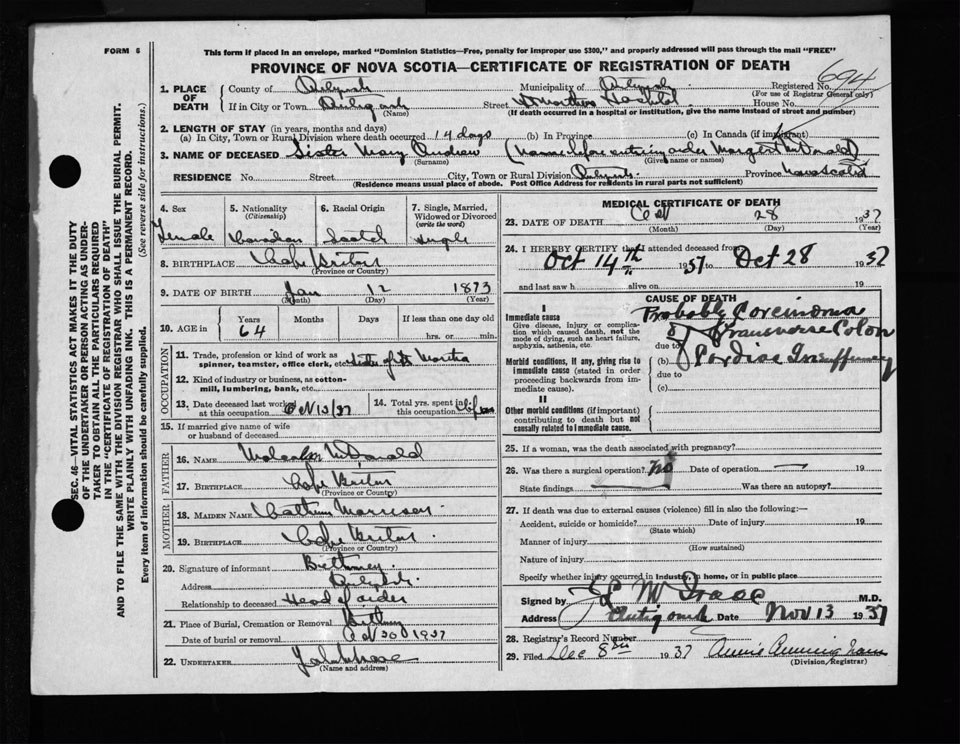 FORM 6
This form if placed in an envelope, marked "Dominion Statistics—Free, penalty for improper use $300," and properly addressed will pass through the mail "FREE"
PROVINCE OF NOVA SCOTIA—CERTIFICATE OF REGISTRATION OF DEATH
SEC. 46—VITAL STATISTICS ACT MAKES IT THE DUTY
OF THE UNDERTAKER OR PERSON ACTING AS UNDER-
TAKER TO OBTAIN ALL THE PARTICULARS REQUIRED
IN THE "CERTIFICATE OF REGISTRATION OF DEATH"
AND TO FILE THE SAME WITH THE DIVISION REGISTRAR WHO SHALL ISSUE THE BURIAL PERMIT.
WRITE PLAINLY WITH UNFADING INK. THIS IS A PERMANENT RECORD.
Every item of information should be carefully supplied. (See reverse side for instructions.)
1. PLACE OF DEATH
County of
Municipality of
Registered No. 694
(For use of Registrar General only)
If in City or Town
(Name)
Street
House No.
(If death occurred in a hospital or institution, give the name instead of street and number)
2. LENGTH OF STAY (in years, months and days)
(a) In City, Town or Rural Division where death occurred 14 days (b) In Province (c) In Canada (if immigrant)
3. NAME OF DECEASED Sister Mary Andrew (Name before entering order Margaret McDonald)
(Surname) (Given name or names)
RESIDENCE No. Street City, Town or Rural Division Province Nova Scotia
(Residence means usual place of abode. Post Office Address for residents in rural parts not sufficient)
4. Sex Female
5. Nationality (Citizenship) Canadian
6. Racial Origin Scotch
7. Single, Married, Widowed or Divorced (write the word) Single
8. BIRTHPLACE Cape Breton
(Province or Country)
9. DATE OF BIRTH Jan 12 1873
(Month) (Day) (Year)
10. AGE in Years 64 Months Days If less than one day old
hrs. or min.
OCCUPATION
11. Trade, profession or kind of work as
spinner, teamster, office clerk, etc. Sister of St Martha
12. Kind of industry or business, as cotton-
mill, lumbering, bank, etc.
13. Date deceased last worked at this occupation
14. Total yrs. spent in this occupation
15. If married give name of wife
or husband of deceased
FATHER
16. NAME Malcolm McDonald
17. BIRTHPLACE Cape Breton
(Province or Country)
MOTHER
18. MAIDEN NAME Morrison
19. BIRTHPLACE Cape Breton
(Province or Country)
20. Signature of informant
Address
Relationship to deceased Head of order
21. Place of Burial, Cremation or Removal
Date of burial or removal 1937
22. UNDERTAKER
(Name and address)
MEDICAL CERTIFICATE OF DEATH
23. DATE OF DEATH Oct 28 1937
(Month) (Day) (Year)
24. I HEREBY CERTIFY that I attended deceased from
Oct 14th 1937 to Oct 28 1937
and last saw h alive on 19
CAUSE OF DEATH
I
Immediate cause
Give disease, injury or complica-
tion which caused death, not the
mode of dying, such as heart failure,
asphyxia, asthenia, etc.
Probably Carcinoma
of Transverse Colon
due to
Cardiac Insufficiency
Morbid conditions, if any, giving rise to
immediate cause (stated in order
proceeding backwards from im-
mediate cause).
due to
(c)
II
Other morbid conditions (if important)
contributing to death but not
causally related to immediate cause.
25. If a woman, was the death associated with pregnancy?
26. Was there a surgical operation? no Date of operation —
State findings Was there an autopsy?
27. If death was due to external causes (violence) fill in also the following:—
Accident, suicide or homicide? Date of injury 19
(State which)
Manner of injury
(How sustained)
Nature of injury
Specify whether injury occurred in industry, in home, or in public place
Signed by M.D.
Address Antigonish Date Nov 13 1937
28. Registrar's Record Number
29. Filed Dec 8th 1937
(Division Registrar)